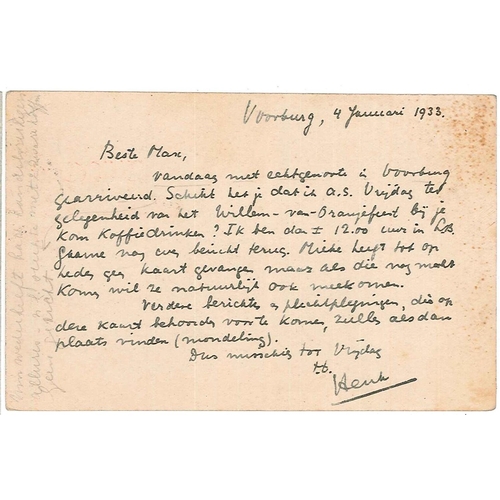 Voorburg, 4 Januari 1933.
Beste Max,
Vandaag met echtgenoote in Voorburg
gearriveerd. Schikt het je dat ik a.s. Vrijdag ter
gelegenheid van het Willem-van-Oranjefeest bij je
kom koffiedrinken? Ik ben dan ± 12.00 uur in
Gaarne nog even bericht terug. Mieke heeft tot op
heden geen kaart gevangen maar als die nog mocht
komen wil ze natuurlijk ook meekomen.
Verdere berichten en plichtplegingen, die op
deze kaart behoorden voor te komen, zullen alsdan
plaats vinden (mondeling).
Dus misschien tot Vrijdag
t.t.
Henk